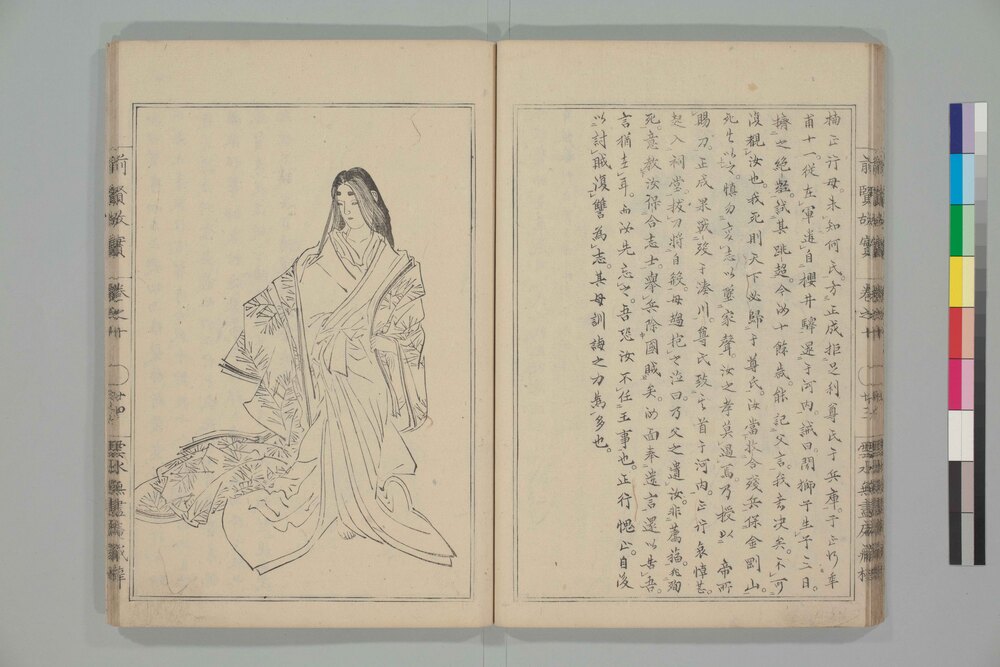 楠正行母。未知何氏。方正成拒足利尊氏于兵庫。子正行年
甫十一。從在軍。遣自櫻井歸還于河内。誡曰聞獅子生子三日。
擠之絶壑。試其跳超。今汝十餘歳。能記父言。我去決矣。不可
復覩汝也。我死則天下必歸于尊氏。汝當收合殘兵保金剛山。
死生以之。愼勿變志以墜家聲。汝之孝莫過焉。乃授以帝所
賜刀。正成果戰殁于湊川。尊氏致其首于河内。正行哀悼甚。
入祠堂拔刀將自殺。母抱之泣曰乃父之遺汝。非薦福殉
死。意教汝保合志士。舉兵除國賊矣。汝面奉遺言還以告吾。
言猶在耳。而汝先忘之。吾恐汝不任王事也。正行愧止。自後
以討賊復讐為志。其母訓誨之力為多也。
前賢故實
卷之十
廿三
前賢故實
卷之十
廿四
雲水無盡